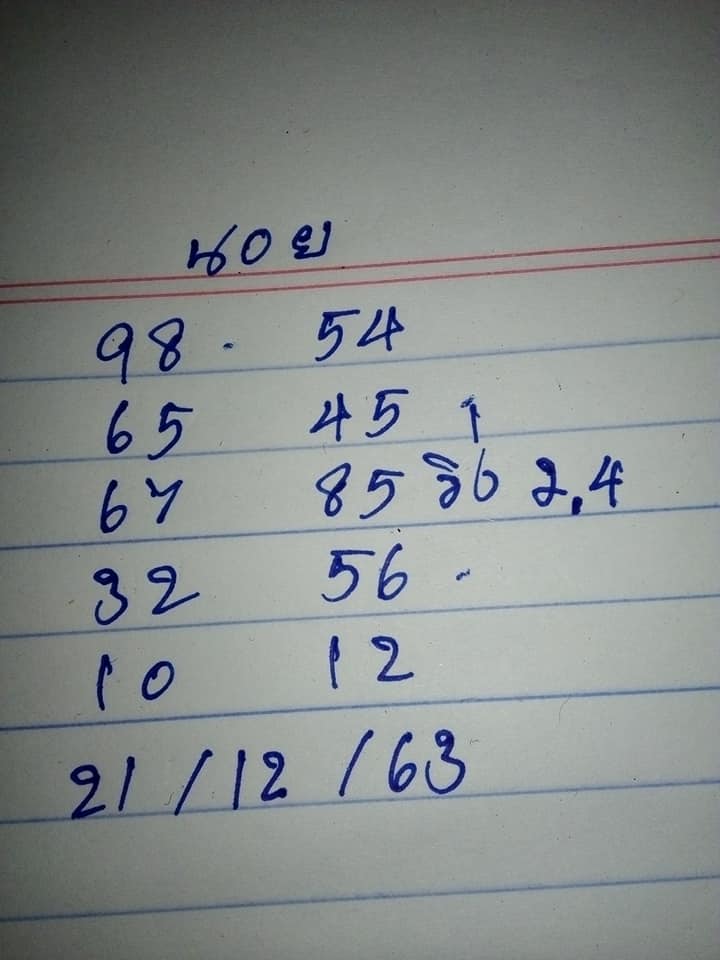 นอย
98 . 54
65 45 1
67 85 วิ่ง 2,4
32 56 .
10 12
21 / 12 / 63